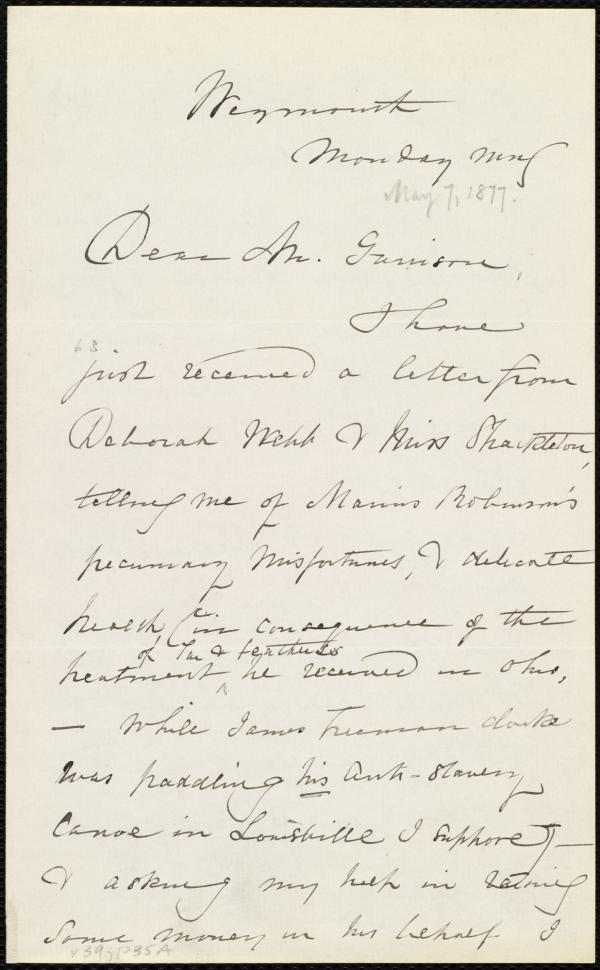 Weymouth
Monday mng
May 7, 1877.
Dear Mr. Garrison,
I have
63
just received a letter from
Deborah Webb & Miss Shackleton,
telling me of Marius Robinson's
pecuniary misfortunes, & delicate
health, (in consequence of the
of Tar & feathers
treatment ^ he received in Ohio,
— while James Freeman Clarke
was paddling his Anti-Slavery
Canoe in Louisville I suppose) —
& asking my help in raising
some money in his behalf. I
v39p35A